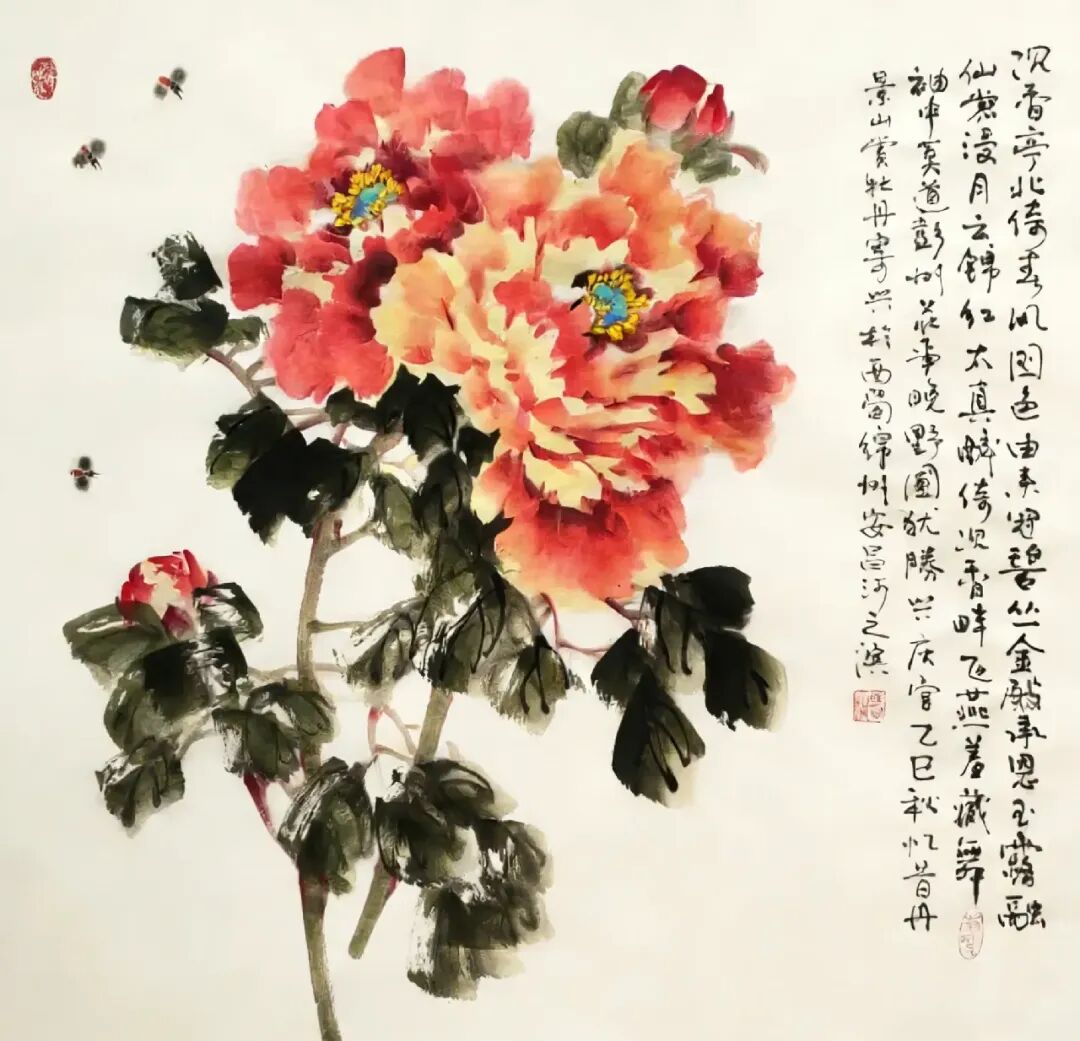 沉香亭北倚春风国色由来冠碧丛金殿承恩玉露融
仙裳浸月云锦红太真醉倚沉香畔飞燕羞藏舞
袖中莫道彭州花事晚野圃犹勝兴庆宫乙巳秋忆昔丹
景山赏牡丹寄兴於西蜀绵州安昌河之滨